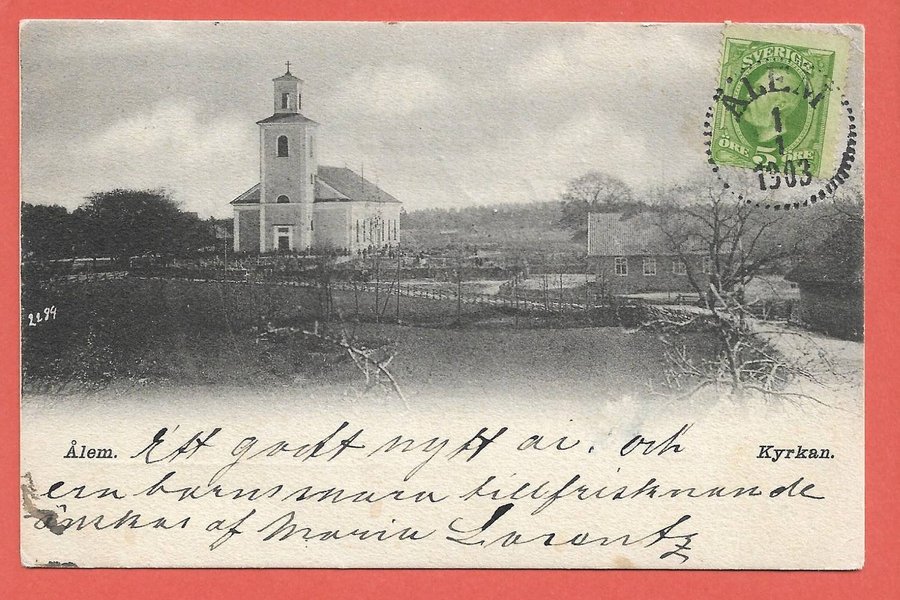 SVERIGE
5
ÖRE ÖRE
ÅLEM
1
1
1903
2294
Ålem. Kyrkan.
Ett godt nytt år. och
tillfrisknande
önskas af Maria